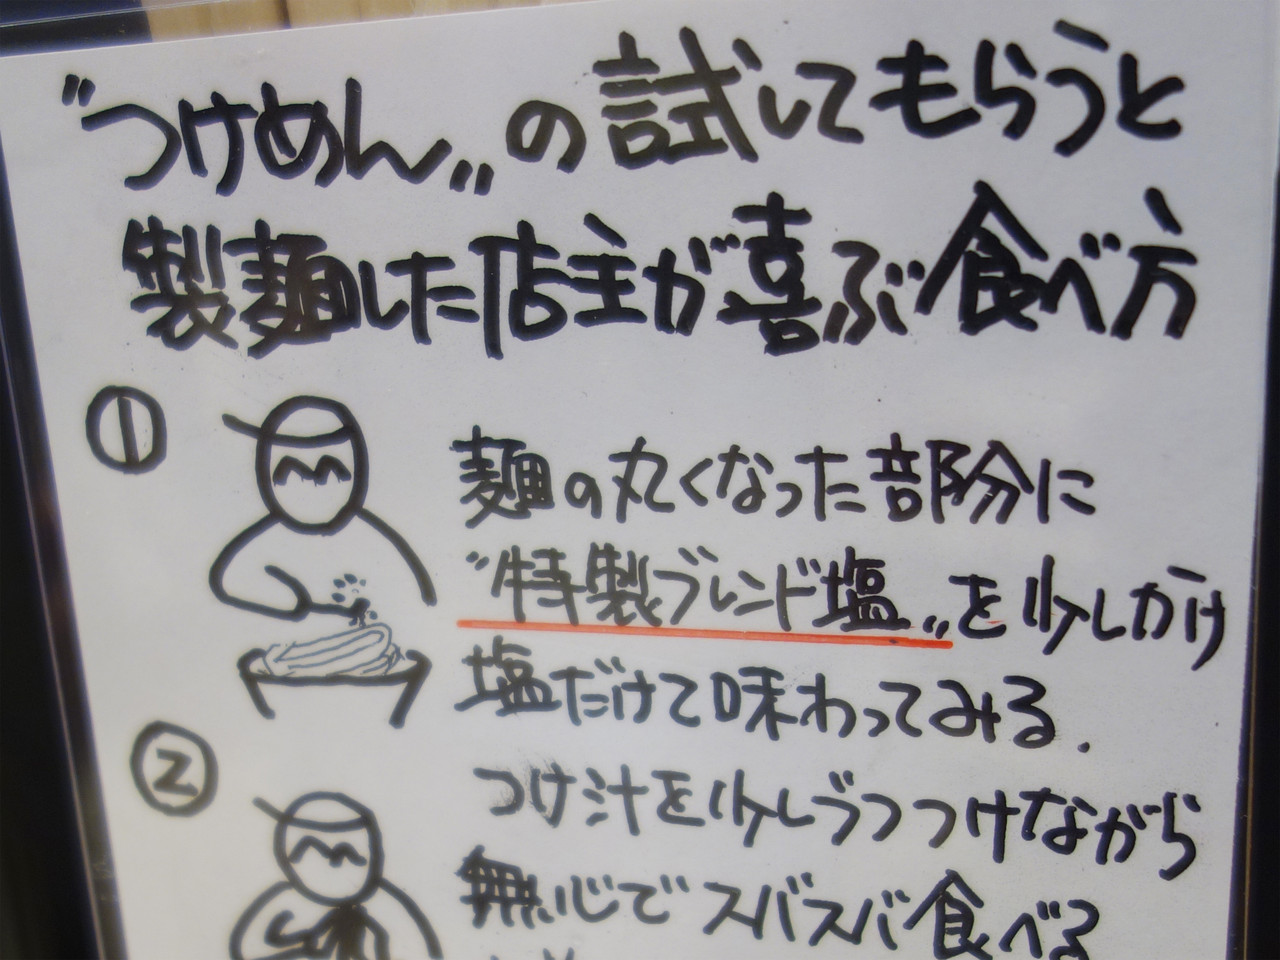 "つけめん"の試してもらうと
製麺した店主が喜ぶ食べ方
①
麺の丸くなった部分に
"特製ブレンド塩"を少しかけ
塩だけで味わってみる.
②
つけ汁を少しづつつけながら
無心でズバズバ食べる